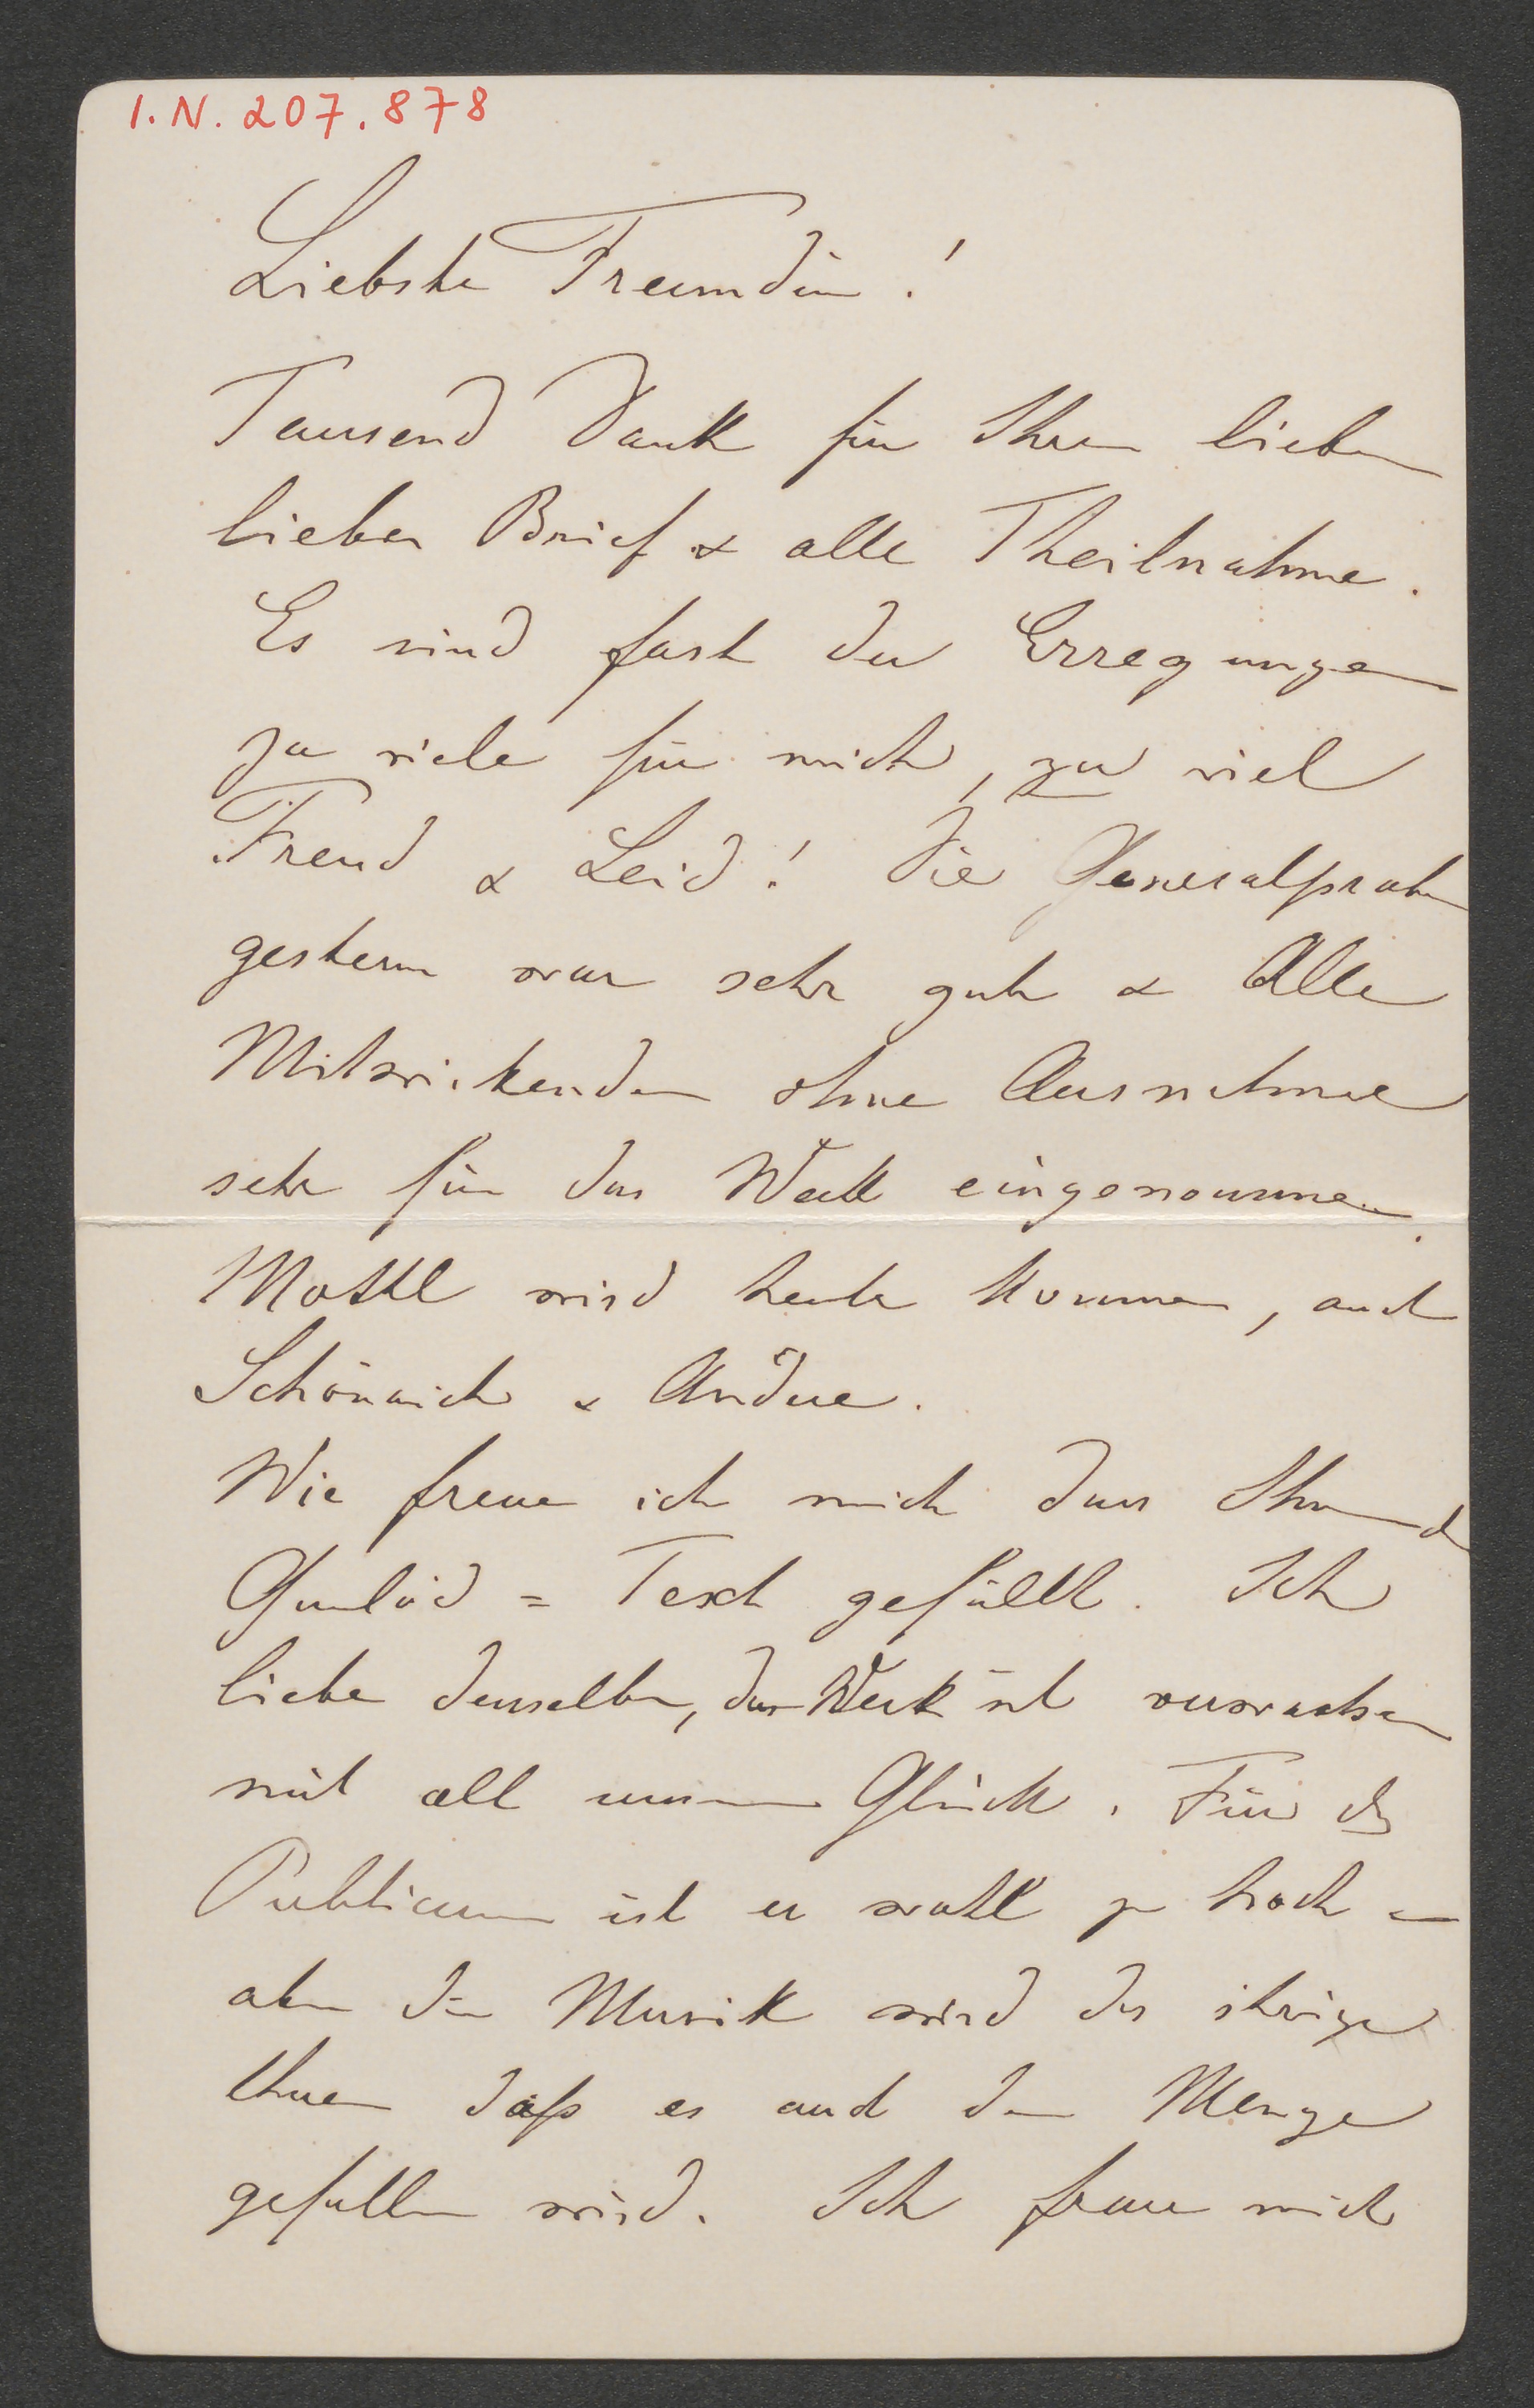 I.N. 207.878
Liebste Freundin!
Tausend Dank für Ihren lieben
lieben Brief & alle Theilnahme.
Es sind fast der Erregungen
zu viele für mich, zu viel
Freud & Leid! Die Generalprobe
gestern war sehr gut & Alle
Mitwirkenden ohne Ausnahme
sehr für das Werk eingenommen.
Mottl wird heute kommen, auch
Schönaich & Andere.
Wie freue ich mich dass Ihnen der
Gunlöd = Text gefällt. Ich
liebe denselben, das Werk ist verwachsen
mit all unserem Glück. Für das
Publicum ist er wohl zu hoch –
aber die Musik wird das ihrige
thuen daß es auch der Menge
gefallen wird. Ich freue mich